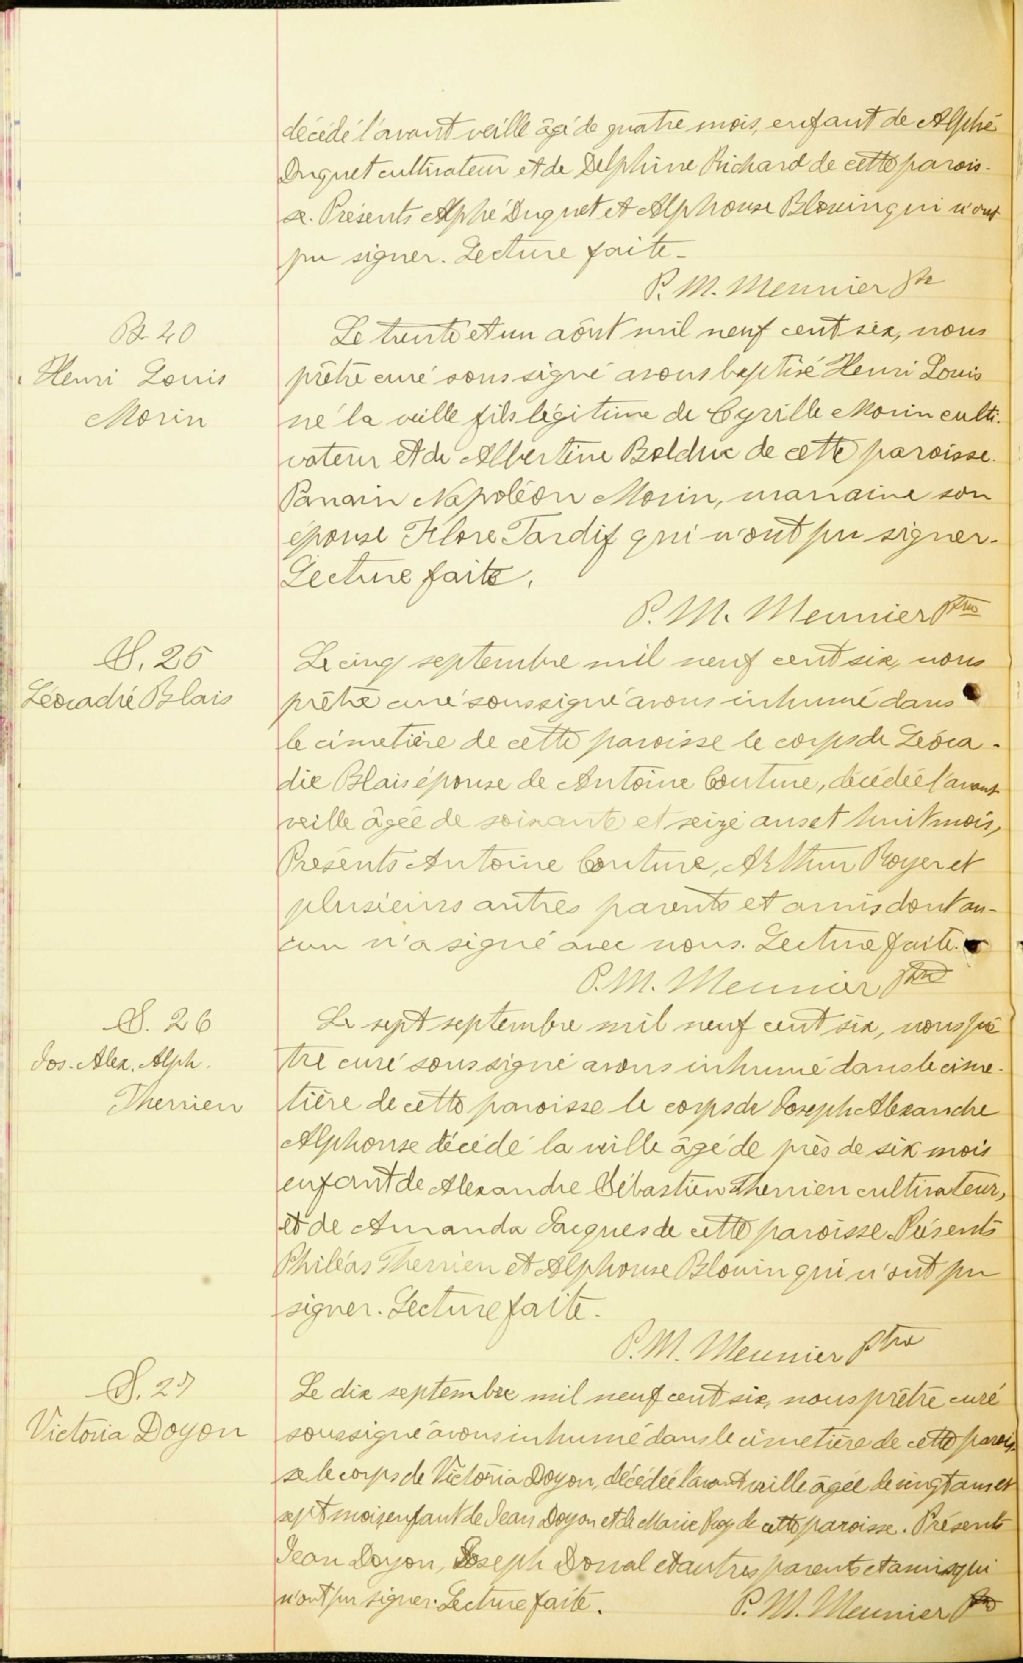 décédé l'avant veille âgé de quatre mois, enfant de Alphé
Duquet cultivateur et de Delphine Richard de cette parois-
se. Présents Alphé Duquet et Alphonse Blouin qui n'ont
pu signer. Lecture faite.
P. M. Meunier ptre
B 40
Henri Louis
Morin
Le trente et un août mil neuf cent six, nous
prêtre curé soussigné avons baptisé Henri Louis
né la veille fils légitime de Cyrille Morin culti-
vateur et de Albertine Bolduc de cette paroisse.
Parrain Napoléon Morin, marraine son
épouse Flore Tardif qui n'ont pu signer.
Lecture faite.
P. M. Meunier Ptre
S. 25
Léocadie Blais
Le cinq septembre mil neuf cent six, nous
prêtre curé soussigné avons inhumé dans
le cimetière de cette paroisse le corps de Léoca-
die Blais épouse de Antoine Couture, décédée l'avant
veille âgée de soixante et seize ans et huit mois,
Présents Antoine Couture, Arthur Royer et
plusieurs autres parents et amis dont au-
cun n'a signé avec nous. Lecture faite.
P. M. Meunier ptre
S. 26
Jos. Alex. Alph.
Therrien
Le sept septembre mil neuf cent six, nous prê
tre curé soussigné avons inhumé dans le cime-
tière de cette paroisse le corps de Joseph Alexandre
Alphonse décédé la veille âgé de près de six mois
enfant de Alexandre Sébastien Therrien cultivateur,
et de Amanda Jacques de cette paroisse. Présents
Philéas Therrien et Alphonse Blouin qui n'ont pu
signer. Lecture faite.
P. M. Meunier ptre
S. 27
Victoria Doyon
Le dix septembre mil neuf cent six, nous prêtre curé
soussigné avons inhumé dans le cimetière de cette parois-
se le corps de Victoria Doyon, décédée l'avant veille âgée de vingt ans et
sept mois, enfant de Jean Doyon et de Marie Roy de cette paroisse. Présents
Jean Doyon, Joseph Dorval et autres parents et amis qui
n'ont pu signer. Lecture faite.
P. M. Meunier ptre